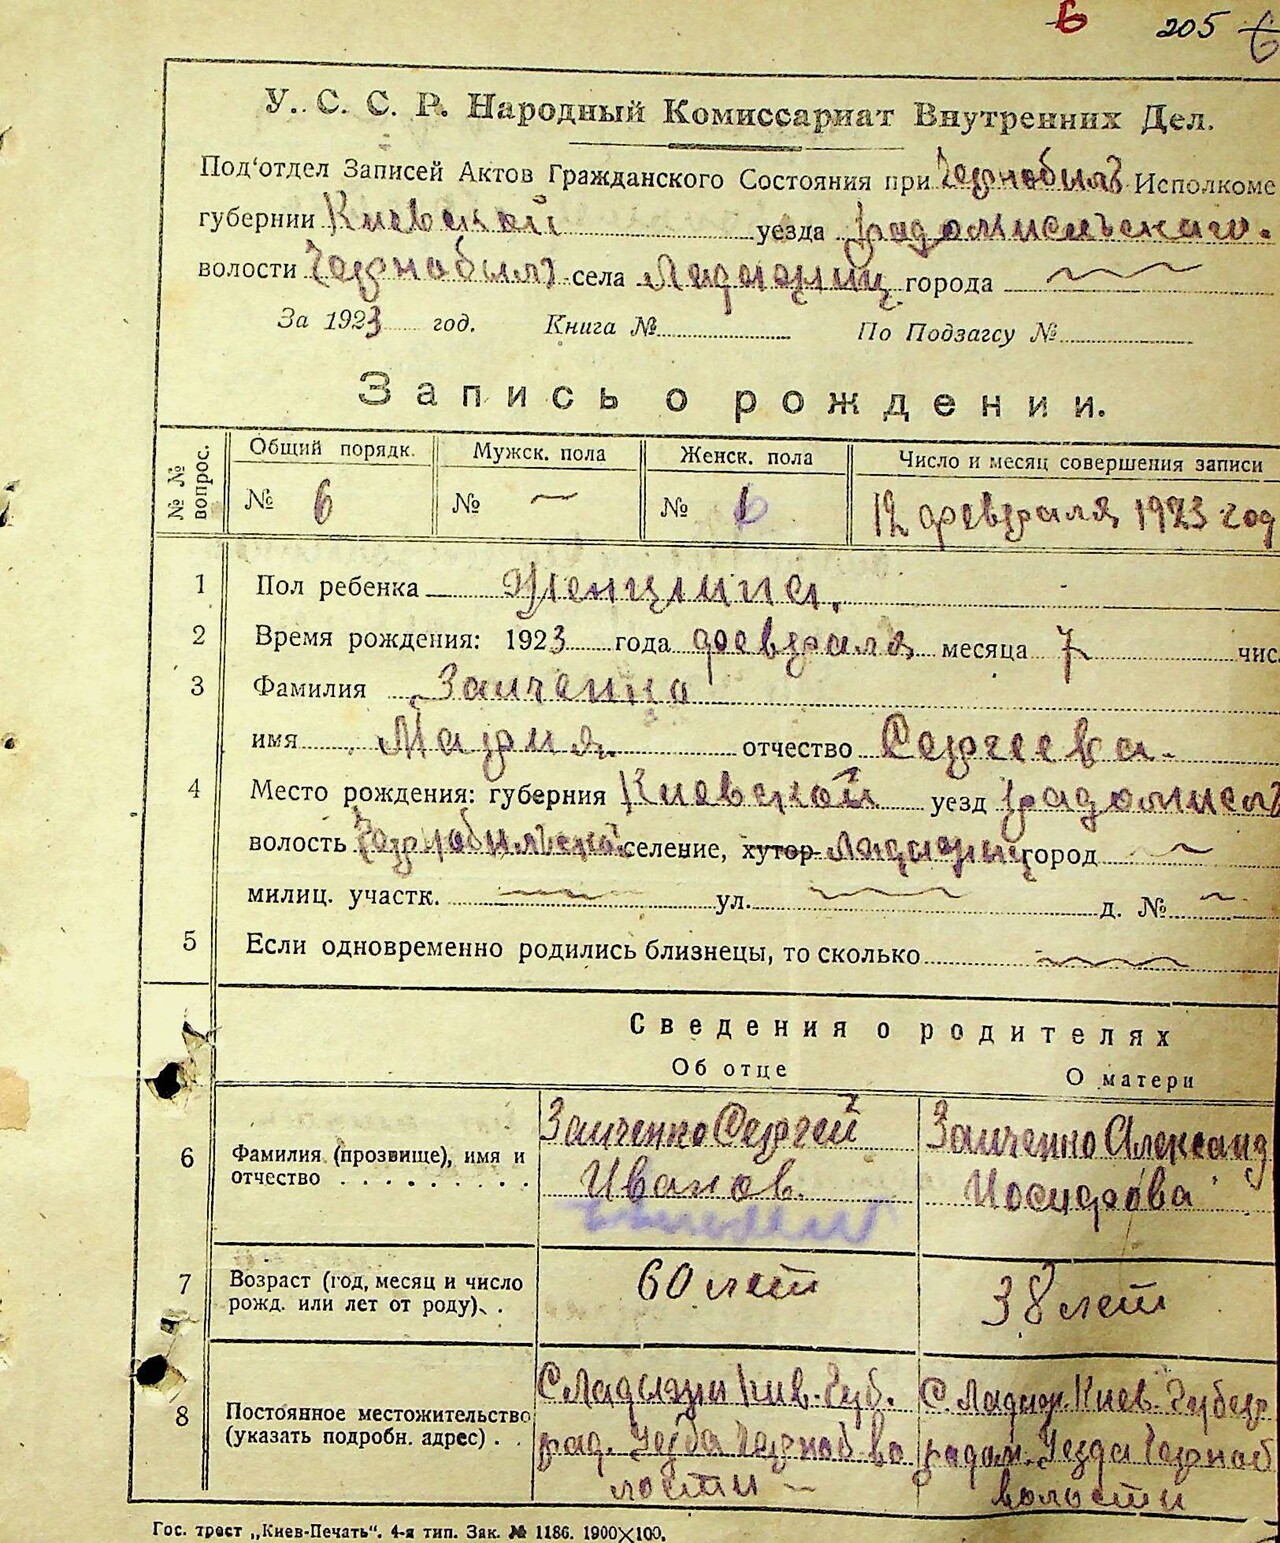 6 205 6
У. С. С. Р. Народный Комиссариат Внутренних Дел.
Под'отдел Записей Актов Гражданского Состояния при Чернобыль Исполкоме
губернии Киевской уезда радомисльского.
волости Чернобыль села города
За 1923 год. Книга № По Подзагсу №
Запись о рождении.
№ № вопрос. Общий порядк. Мужск. пола Женск. пола Число и месяц совершения записи
№ 6 № № 6 12 февраля 1923 год
1 Пол ребенка Женщина.
2 Время рождения: 1923 года февраля месяца 7 чис.
3 Фамилия Заиченко
имя Мария. отчество Сергеева.
4 Место рождения: губерния Киевской уезд радомисль
волость селение, хутор город
милиц. участк. ул. д. №
5 Если одновременно родились близнецы, то сколько
Сведения о родителях
Об отце О матери
6 Фамилия (прозвище), имя и отчество Заиченко Сергей Заиченко Александ
Иванов. Иосифова
7 Возраст (год, месяц и число рожд. или лет от роду) 60 лет 38 лет
8 Постоянное местожительство (указать подробн. адрес)
С. Киев. Губер
рад. Уезда Черноб во радом. Уезда Черноб
лости волости
Гос. трест „Киев-Печать“. 4-я тип. Зак. № 1186. 1900×100.